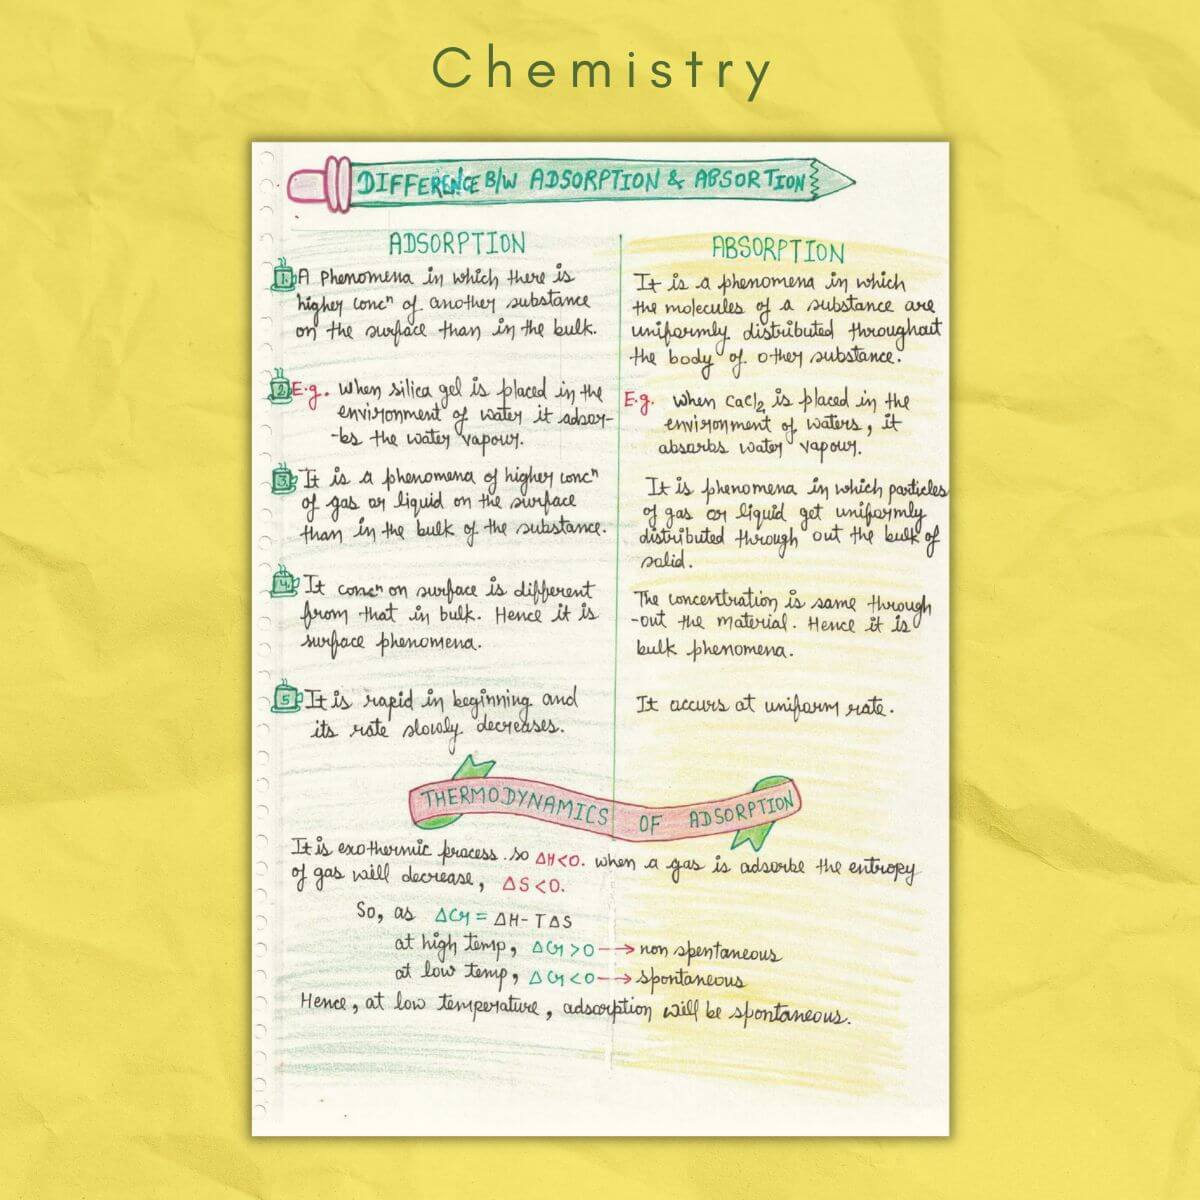 Chemistry
DIFFERENCE B/W ADSORPTION & ABSORTION
ADSORPTION
1. A Phenomena in which there is
higher concⁿ of another substance
on the surface than in the bulk.
2. E.g. when silica gel is placed in the
environment of water it adsor-
-bs the water vapour.
3. It is a phenomena of higher concⁿ
of gas or liquid on the surface
than in the bulk of the substance.
4. It concⁿ on surface is different
from that in bulk. Hence it is
surface phenomena.
5 It is rapid in beginning and
its rate slowly decreases.
ABSORPTION
It is a phenomena in which
the molecules of a substance are
uniformly distributed throughout
the body of other substance.
E.g. when CaCl₂ is placed in the
environment of waters, it
absorbs water vapour.
It is phenomena in which particles
of gas or liquid get uniformly
distributed through out the bulk of
solid.
The concentration is same through
-out the material. Hence it is
bulk phenomena.
It occurs at uniform rate.
THERMODYNAMICS OF ADSORPTION
It is exothermic process. so ΔH<0. when a gas is adsorbe the entropy
of gas will decrease, ΔS<0.
So, as ΔG = ΔH- TΔS
at high temp, ΔG>0 --→ non spentaneous
at low temp, ΔG<0 --→ spontaneous
Hence, at low temperature, adsorption will be spontaneous.